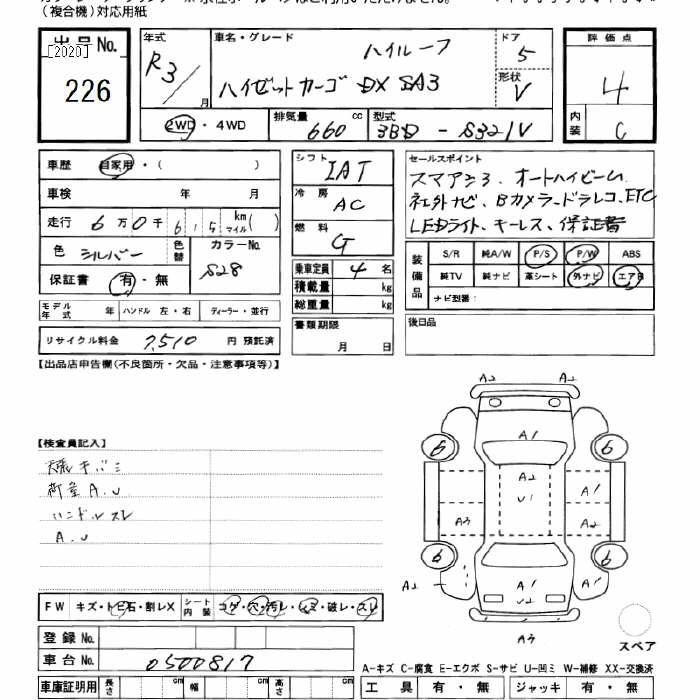 (複合機)対応用紙
出品No.
[2020]
226
年式 R3/ 月
車名・グレード ハイルーフ
ハイゼットカーゴ DX SA3
ドア 5
形状 V
評価点
4
内装 C
2WD・4WD
排気量 660 cc
型式 3BD - S321V
車歴 自家用・( )
車検 年 月
走行 6万0千615 km マイル( )
色 シルバー 色替
カラーNo. S28
保証書 有・無
モデル年式 年 ハンドル 左・右 ディーラー・並行
リサイクル料金 7,510 円 預託済
シフト IAT
冷房 AC
燃料 G
乗車定員 4 名
積載量 kg
総重量 kg
書類期限
月 日
セールスポイント
スマアシ3、オートハイビーム
社外ナビ、Bカメラ、ドラレコ、ETC
LEDライト、キーレス、保証書
装備品
S/R 純A/W P/S P/W ABS
純TV 純ナビ 革シート 外ナビ エアB
ナビ型番:
後日品
【出品店申告欄(不良箇所・欠品・注意事項等)】
【検査員記入】
天張キバミ
荷室A.U
ハンドルスレ
A.U
A2 A2
6 A1 6
A2
U1
A1
A3 A2
6 6
A2 A1 A1
U2
A3
スペア
FW キズ・トビ石・割レX
シート内装 コゲ・穴・汚レ・シミ・破レ・スレ
登録No.
車台No. 0500817
A-キズ C-腐食 E-エクボ S-サビ U-凹ミ W-補修 XX-交換済
車庫証明用 長さ cm 幅 cm 高さ cm
工具 有・無 ジャッキ 有・無